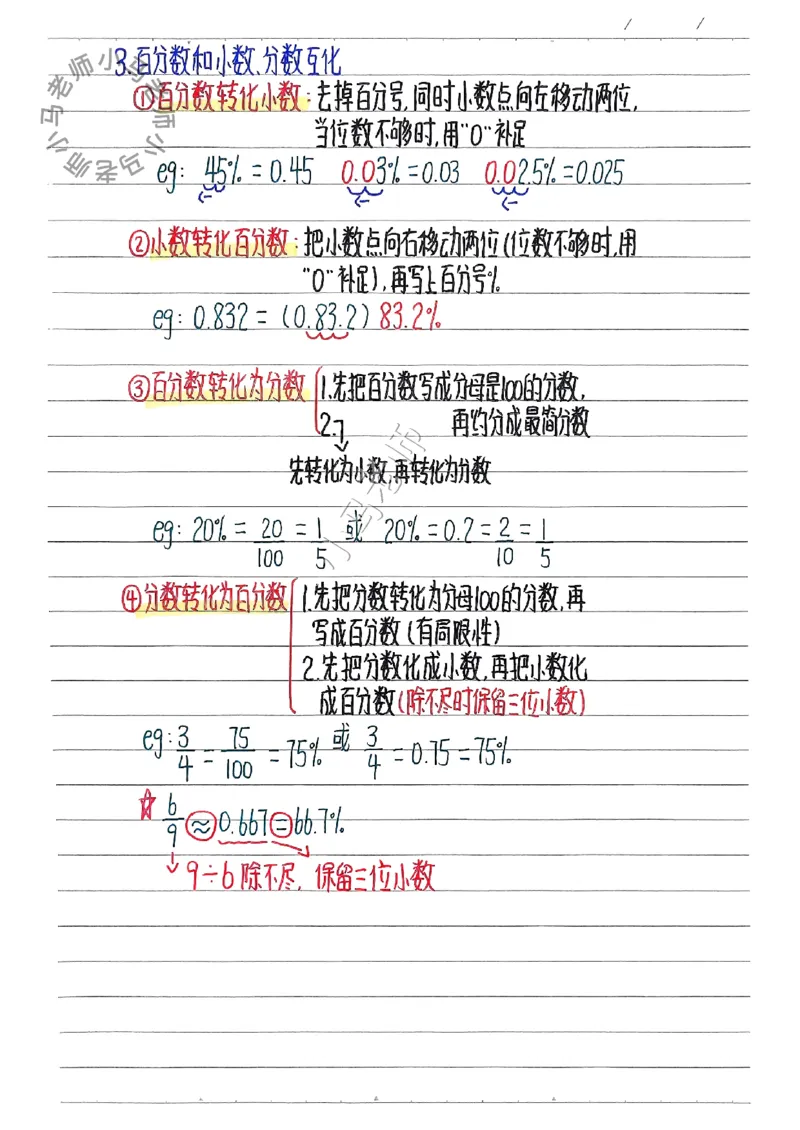 3.百分数和小数、分数互化
①百分数转化小数:去掉百分号,同时小数点向左移动两位,
当位数不够时,用"0"补足
eg: 45% = 0.45 0.03% = 0.03 0.02.5% = 0.025
②小数转化百分数:把小数点向右移动两位(位数不够时,用
"0"补足),再写上百分号%.
eg: 0.832 = (0.83.2) 83.2%
③百分数转化为分数 1.先把百分数写成分母是100的分数,
2. 再约分成最简分数
先转化为小数,再转化为分数
eg: 20% = 20/100 = 1/5 或 20% = 0.2 = 2/10 = 1/5
④分数转化为百分数 1.先把分数转化为分母100的分数,再
写成百分数(有局限性)
2.先把分数化成小数,再把小数化
成百分数(除不尽时保留三位小数)
eg: 3/4 = 75/100 = 75% 或 3/4 = 0.75 = 75%
☆ 6/9 ≈ 0.667 = 66.7%
↓ 9÷6除不尽,保留三位小数
小马老师小马老师小马老师
小马老师